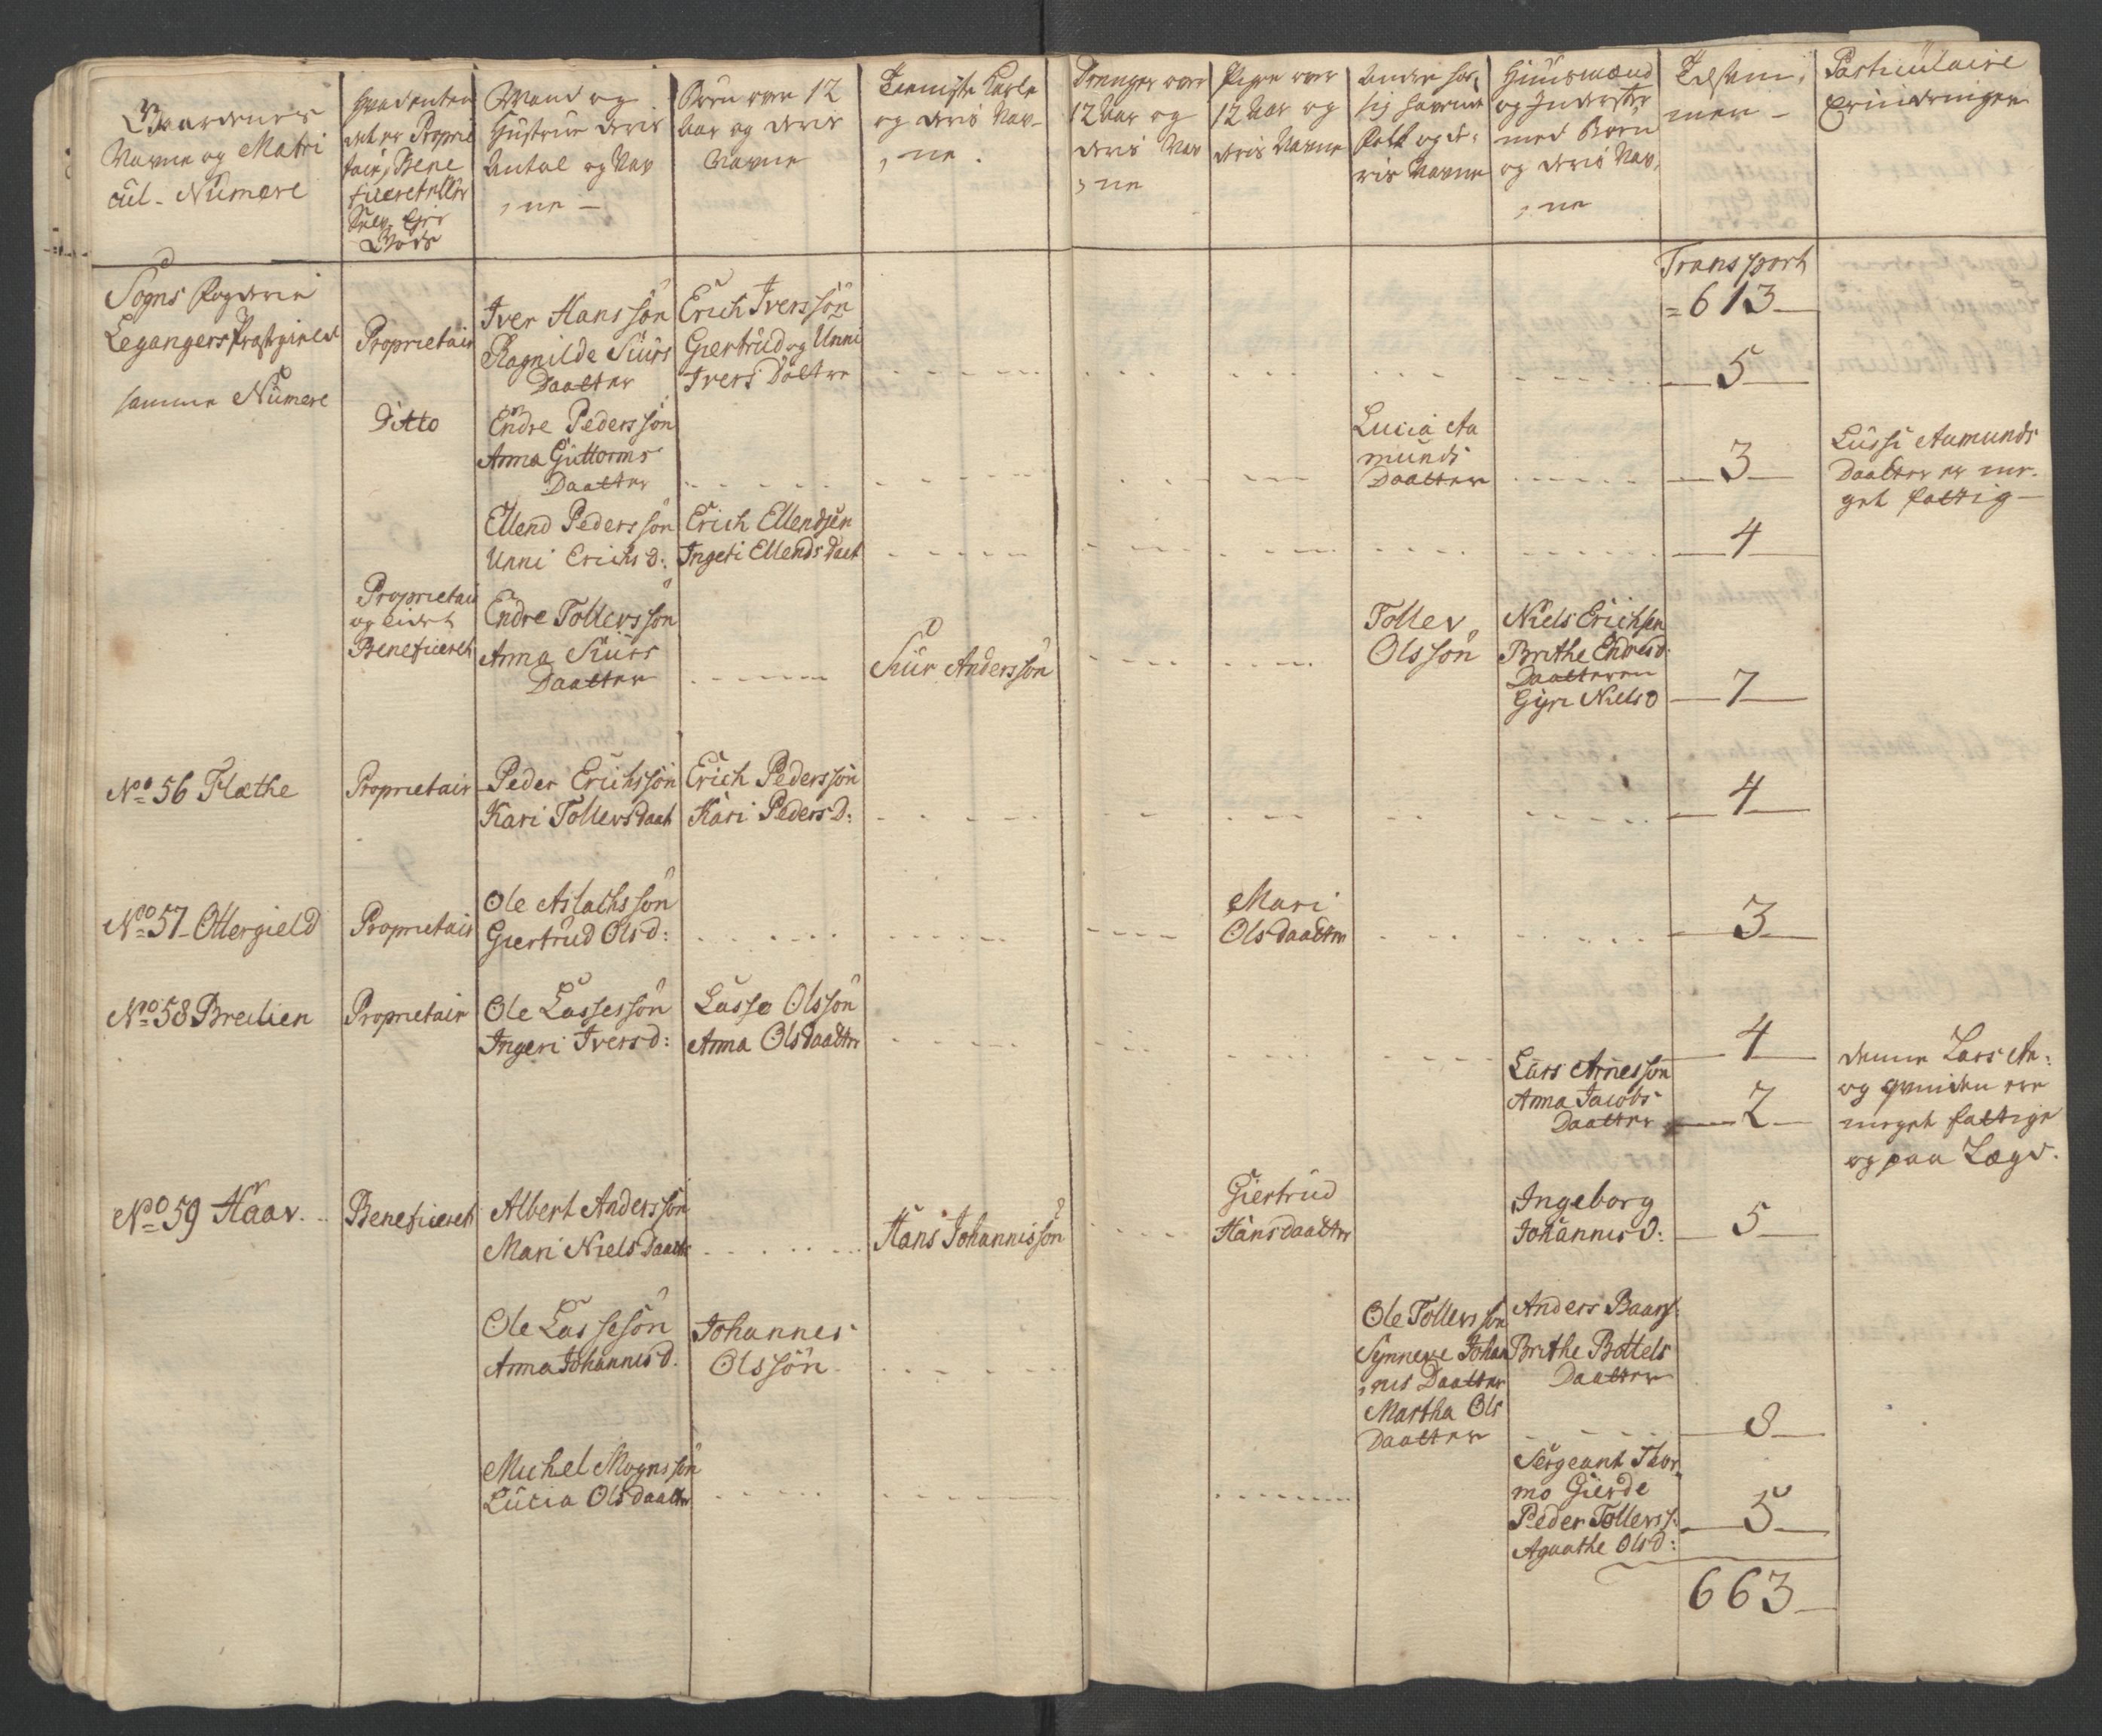 Gaardenes
Navne og Matri
cul. Numere
Hvad enten
det er Proprie
tair, Bene
ficeret eller
Selv Eier
Gods
Mand og
Hustrue deris
Antal og Nav
, ne
Børn over 12
Aar og deris
Navne
Tieniste Karle
og deris Nav-
, ne.
Drenger over
12 Aar og
deris Nav
, ne
Piger over
12 Aar og
deris Navne
Andre hos
sig havende
Folk og de:
ris Navne
Huusmænd
og Inderster
med Børn
og deris Nav,
, ne
Tilsam,
men
Particulaire
Erindringer
Transport
= 613
Sogns Fogderie
Legangers Præstegield
samme Numere
Proprietair
Iver Hanssøn
Ragnilde Siurs
Daatter
Erich Iverssøn
Giertrud og Unni
Ivers Døttre
5
Ditto
Endre Pederssøn
Anna Guttorms
Daatter
Lucia Aa
munds
Daatter
3
Lussi Aamunds
Daatter er me-
get fattig
Ellend Pederssøn
Unni Erichs D:
Erich Ellendsen
Ingeri Ellends Daat
4
Proprietair
og eidet
Beneficeret
Endre Tollevssøn
Anna Siurs
Daatter
Siur Anderssøn
Tollev
Olssøn
Niels Erichsen
Brithe Endresd.
Daatteren
Gyri Nielsd
7
No. 56 Flæthe
Proprietair
Peder Erichssøn
Kari Tollevsdaat
Erich Pederssøn
Kari Peders D:
4
No. 57 Ottergield
Proprietair
Ole Aslachssøn
Giertrud Olsd:
Mari
Olsdaatter
3
No. 58 Breilien
Proprietair
Ole Lassessøn
Ingeri Iversd:
Lasse Olssøn
Anna Olsdaatter
4
Lars Arnessøn
Anna Jacobs
Daatter
2
denne Lars Ar:
og qvinden ere
meget fattige
og paa Lægd.
No. 59 Haav.
Beneficeret
Albert Anderssøn
Mari Niels Daatter
Hans Johannissøn
Giertrud
Hansdaatter
Ingeborg
Johannis D:
5
Ole Lassesøn
Anna Johannis d.
Johannes
Olssøn
Ole Tollevssøn
Synneve Johan
, nis Daatter
Martha Ols
Daatter
Anders Baars:
Brithe Bottels
Daatter
8
Michel Mognssøn
Lucia Olsdaatter
Sergeant Thor
mo Gierde
Peder Tollevss:
Aguathe Olsd:
5
663